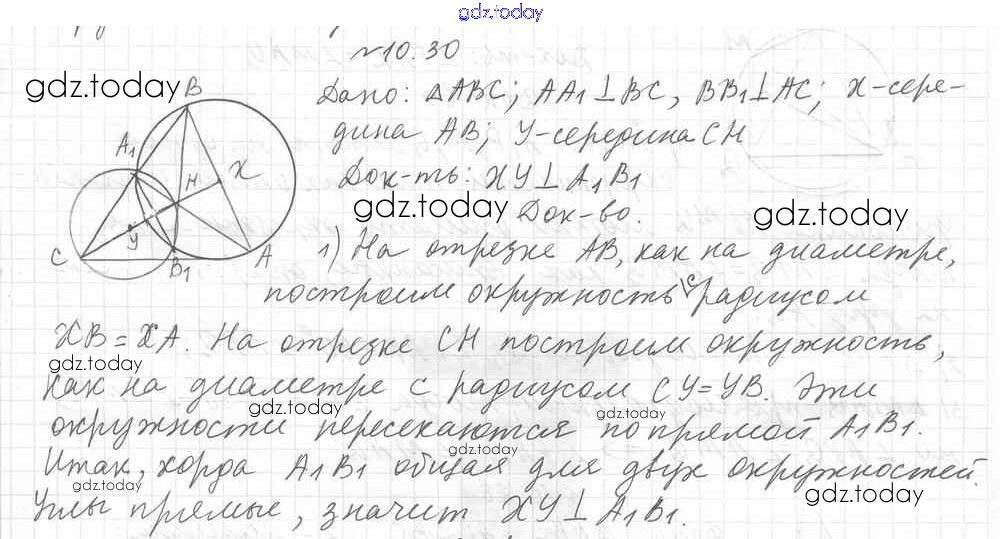 gdz.today
№10.30
gdz.today
Дано: △ABC; AA1⊥BC, BB1⊥AC; X-сере-
дина AB; Y-середина CH
Док-ть: XY⊥A1B1
gdz.today
gdz.today
Док-во.
B
A1
H
X
Y
C
B1
A
1) На отрезке AB, как на диаметре,
построим окружность с радиусом
XB=XA. На отрезке CH построим окружность,
gdz.today
как на диаметре с радиусом CY=YB. Эти
gdz.today
gdz.today
окружности пересекаются по прямой A1B1.
Итак, хорда A1B1 общая для двух окружностей.
gdz.today
gdz.today
Углы прямые, значит XY⊥A1B1.